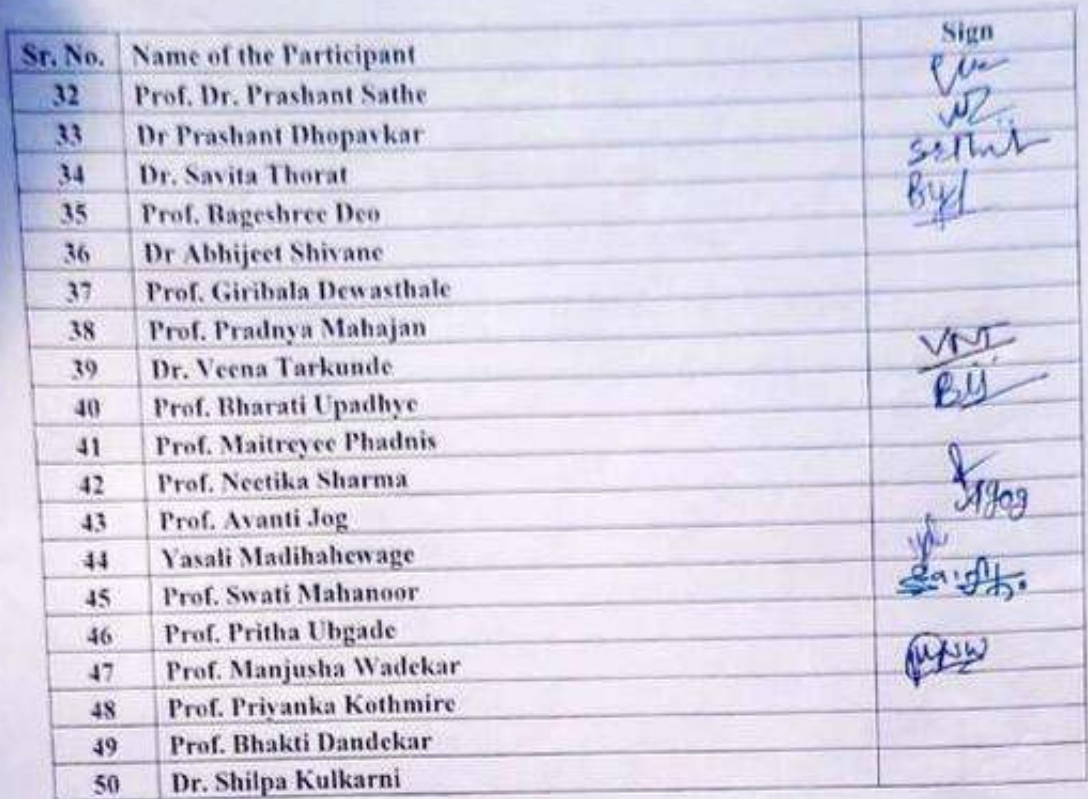 Sr. No. Name of the Participant Sign
32 Prof. Dr. Prashant Sathe
33 Dr Prashant Dhopavkar
34 Dr. Savita Thorat
35 Prof. Bageshree Deo
36 Dr Abhijeet Shivane
37 Prof. Giribala Dewasthale
38 Prof. Pradnya Mahajan
39 Dr. Veena Tarkunde VNT
40 Prof. Bharati Upadhye BU
41 Prof. Maitreyee Phadnis
42 Prof. Neetika Sharma
43 Prof. Avanti Jog
44 Yasali Madihahewage
45 Prof. Swati Mahanoor
46 Prof. Pritha Ubgade
47 Prof. Manjusha Wadekar
48 Prof. Priyanka Kothmire
49 Prof. Bhakti Dandekar
50 Dr. Shilpa Kulkarni